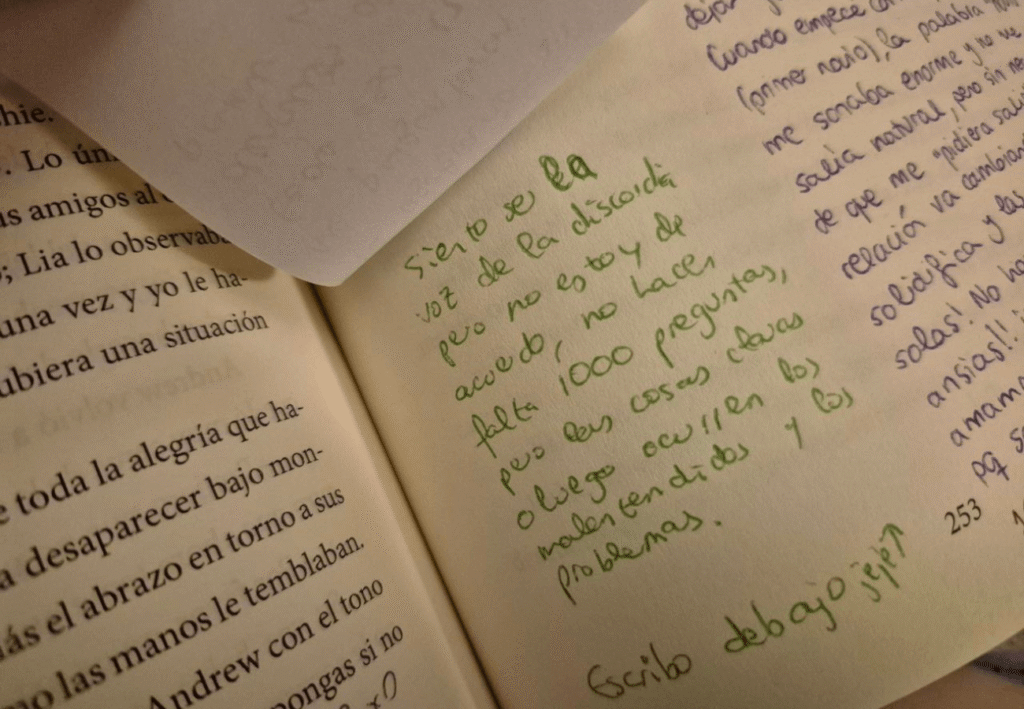 hie.
. Lo ún
s amigos al
; Lia lo observaba
una vez y yo le ha-
ubiera una situación
e toda la alegría que ha-
a desaparecer bajo mon-
ás el abrazo en torno a sus
mo las manos le temblaban.
Andrew con el tono
pongas si no
siento ser la
voz de la discordia
pero no estoy de
acuerdo, no hacen
falta 1000 preguntas,
pero las cosas claras
o luego ocurren los
malentendidos y los
problemas.
Escribo debajo jeje↗
dejar
Cuando empecé con
(primer novio), la palabra
me sonaba enorme y no me
salía natural, pero sin
de que me "pidiera salir
relación va cambiand
solidifica y las
solas! No ha
ansias!!
amam
pq
253